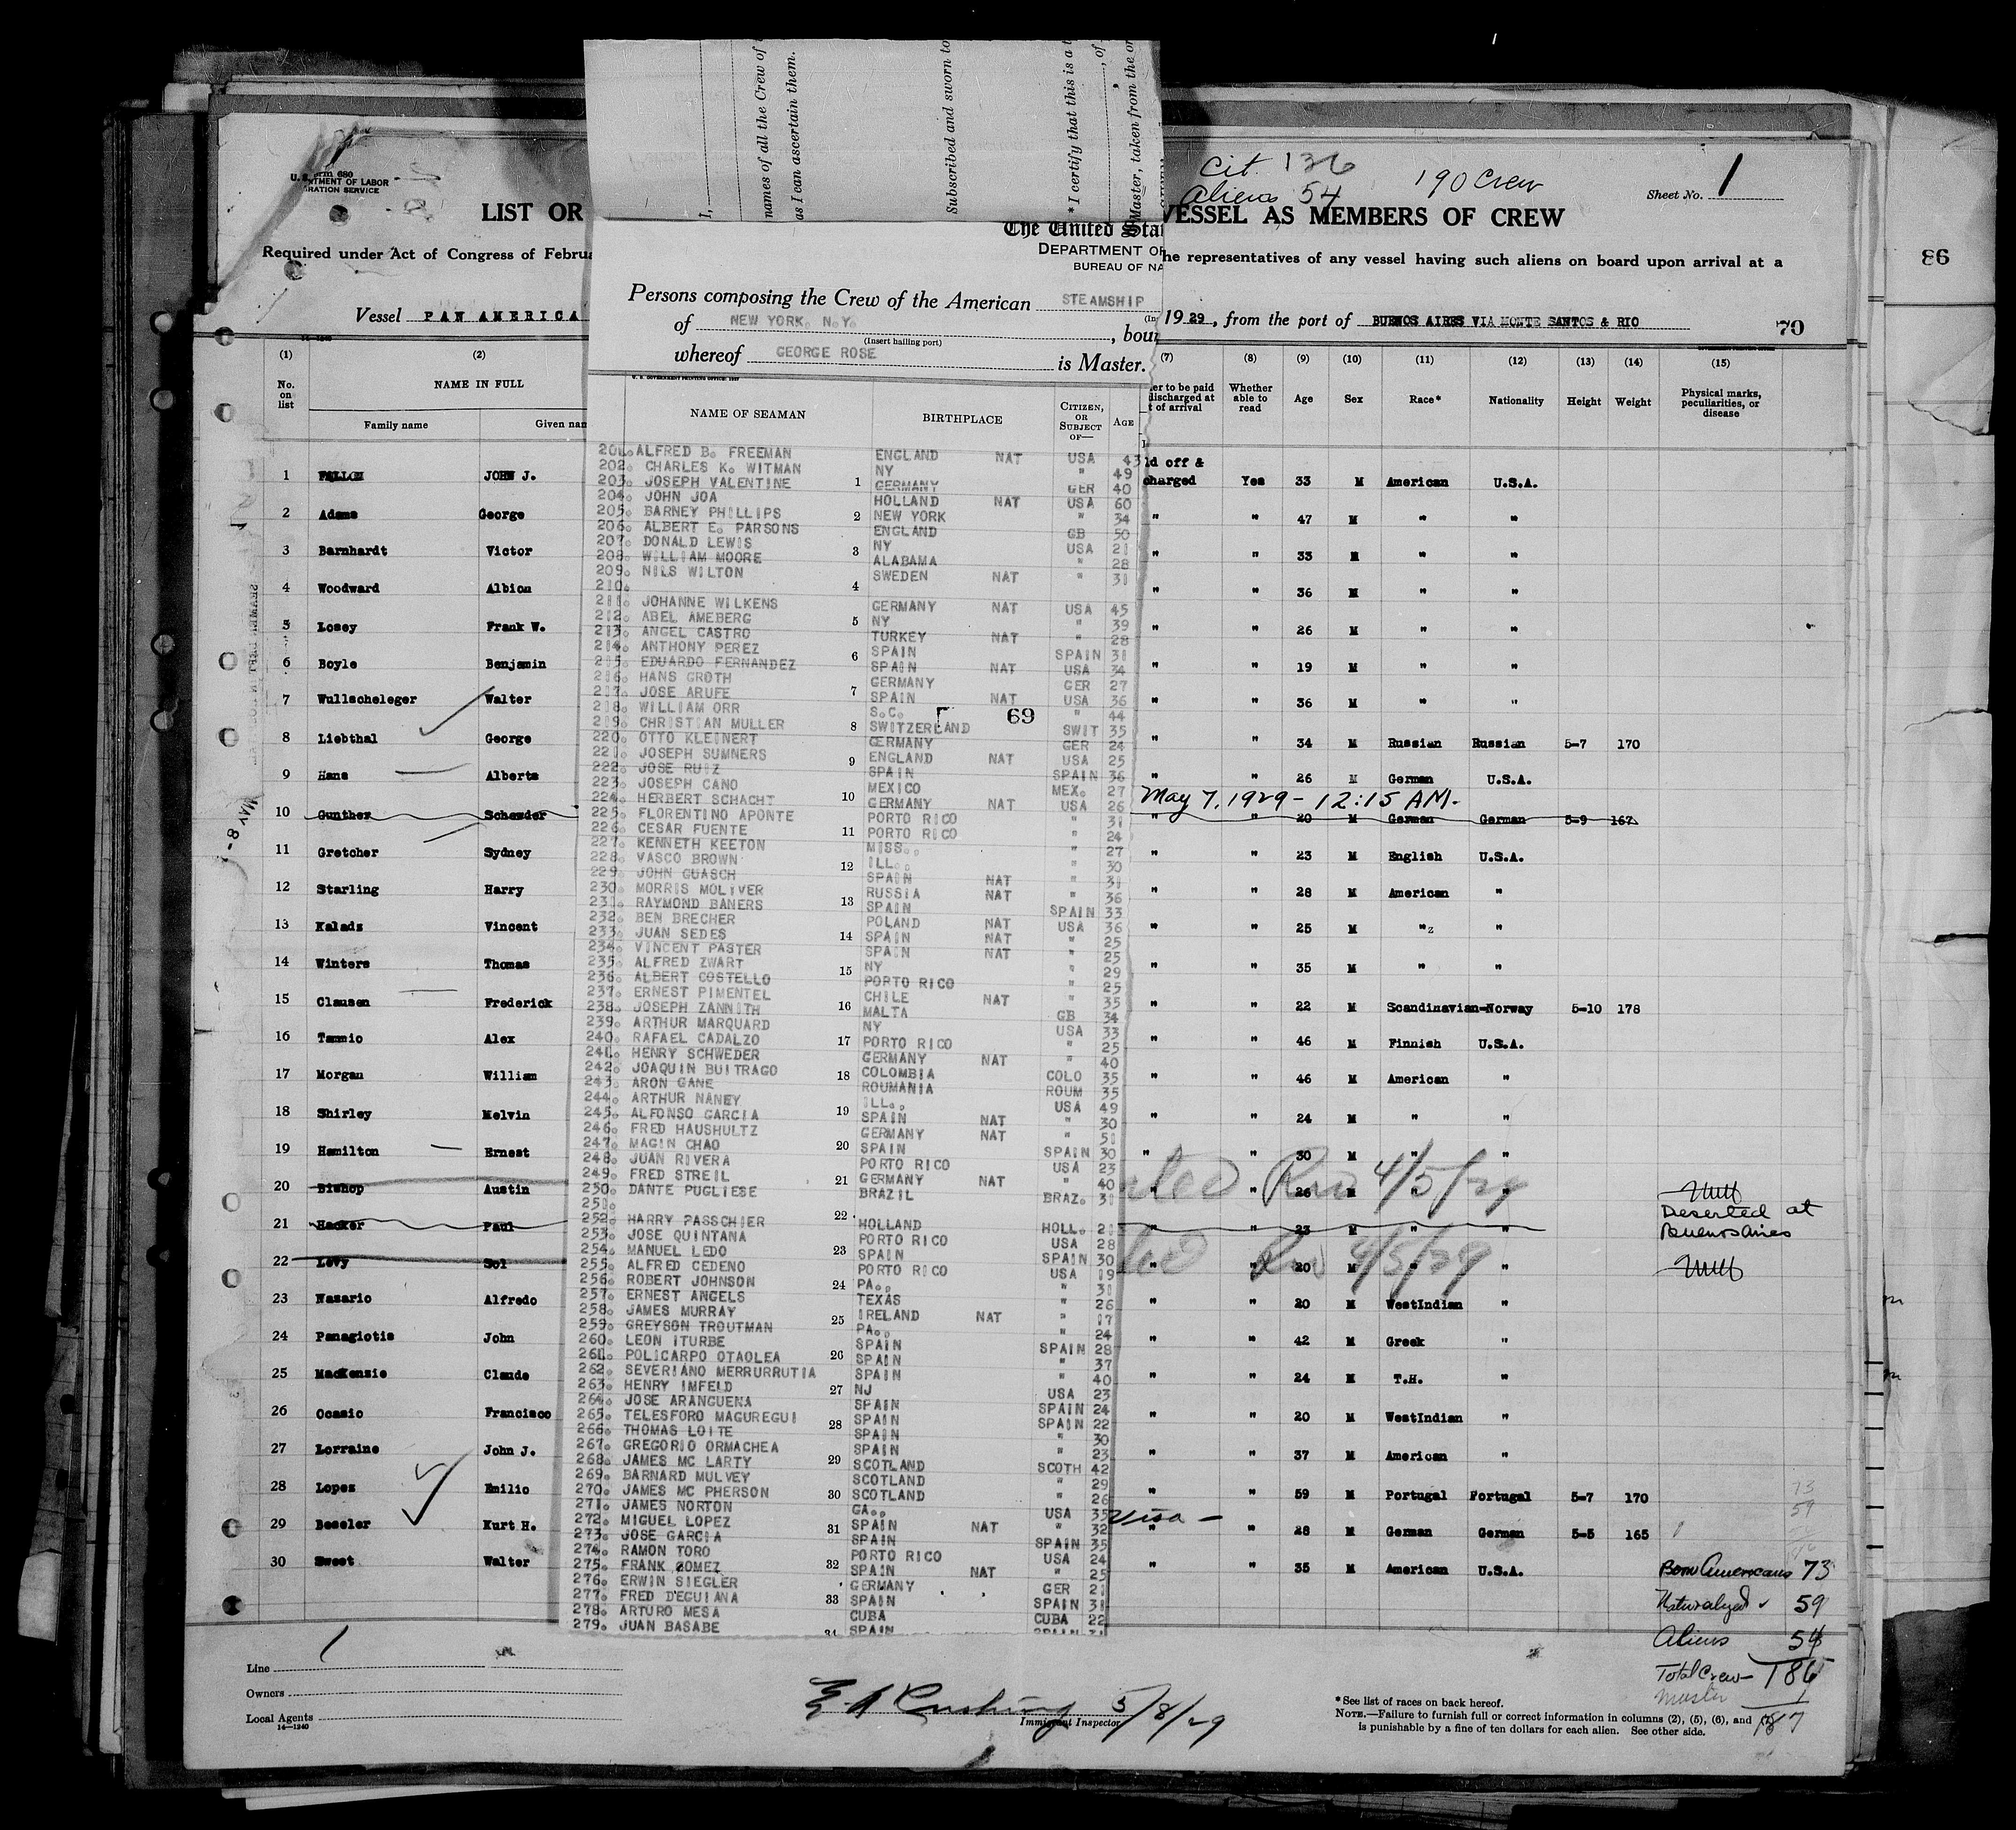 Cit. 136
Aliens 54
190 Crew
Sheet No. 1
U. S.
NTMENT OF LABOR
RATION SERVICE
names of all the Crew of
as I can ascertain them.
Subscribed and sworn to
* I certify that this is a t
Master, taken from the or
LIST OR
VESSEL AS MEMBERS OF CREW
Required under Act of Congress of Februa
he representatives of any vessel having such aliens on board upon arrival at a
86
Vessel PAN AMERICA
19 29, from the port of BUENOS AIRES VIA MONTE SANTOS & RIO
70
The United Stat
DEPARTMENT OF
BUREAU OF NA
Persons composing the Crew of the American STEAMSHIP
of NEW YORK, N.Y. , boun
(Insert hailing port)
whereof GEORGE ROSE is Master.
NAME OF SEAMAN BIRTHPLACE CITIZEN, OR SUBJECT OF— AGE
201. ALFRED B. FREEMAN ENGLAND NAT USA 43
202. CHARLES K. WITMAN NY " 49
203. JOSEPH VALENTINE 1 GERMANY GER 40
204. JOHN JOA HOLLAND NAT USA 60
205. BARNEY PHILLIPS 2 NEW YORK " 34
206. ALBERT E. PARSONS ENGLAND GB 50
207. DONALD LEWIS NY USA 21
208. WILLIAM MOORE 3 ALABAMA " 28
209. NILS WILTON SWEDEN NAT " 31
210. 4
211. JOHANNE WILKENS GERMANY NAT USA 45
212. ABEL AMEBERG 5 NY " 39
213. ANGEL CASTRO TURKEY NAT " 28
214. ANTHONY PEREZ SPAIN SPAIN 31
215. EDUARDO FERNANDEZ 6 SPAIN NAT USA 34
216. HANS GROTH GERMANY GER 27
217. JOSE ARUFE 7 SPAIN NAT USA 36
218. WILLIAM ORR S.C. " 44
69
219. CHRISTIAN MULLER 8 SWITZERLAND SWIT 35
220. OTTO KLEINERT GERMANY GER 24
221. JOSEPH SUMNERS 9 ENGLAND NAT USA 25
222. JOSE RUIZ SPAIN SPAIN 36
223. JOSEPH CANO MEXICO MEX. 27
224. HERBERT SCHACHT 10 GERMANY NAT USA 26
225. FLORENTINO APONTE PORTO RICO " 31
226. CESAR FUENTE 11 PORTO RICO " 24
227. KENNETH KEETON MISS. " 27
228. VASCO BROWN 12 ILL. " 30
229. JOHN GUASCH SPAIN NAT " 31
230. MORRIS MOLIVER RUSSIA NAT " 36
231. RAYMOND BANERS 13 SPAIN SPAIN 33
232. BEN BRECHER POLAND NAT USA 36
233. JUAN SEDES 14 SPAIN NAT " 25
234. VINCENT PASTER SPAIN NAT " 25
235. ALFRED ZWART NY " 29
236. ALBERT COSTELLO 15 PORTO RICO " 25
237. ERNEST PIMENTEL CHILE NAT " 35
238. JOSEPH ZANNITH 16 MALTA GB 34
239. ARTHUR MARQUARD NY USA 33
240. RAFAEL CADALZO 17 PORTO RICO " 25
241. HENRY SCHWEDER GERMANY NAT " 40
242. JOAQUIN BUITRAGO 18 COLOMBIA COLO 35
243. ARON GANE ROUMANIA ROUM 35
244. ARTHUR NANEY ILL. USA 49
245. ALFONSO GARCIA 19 SPAIN NAT " 30
246. FRED HAUSHULTZ GERMANY NAT " 51
247. MAGIN CHAO 20 SPAIN SPAIN 30
248. JUAN RIVERA PORTO RICO USA 23
249. FRED STREIL 21 GERMANY NAT " 40
250. DANTE PUGLIESE BRAZIL BRAZ. 31
251. 22
252. HARRY PASSCHIER HOLLAND HOLL. 21
253. JOSE QUINTANA PORTO RICO USA 28
254. MANUEL LEDO 23 SPAIN SPAIN 30
255. ALFRED CEDENO PORTO RICO USA 19
256. ROBERT JOHNSON 24 PA. " 31
257. ERNEST ANGELS TEXAS " 26
258. JAMES MURRAY 25 IRELAND NAT " 17
259. GREYSON TROUTMAN PA. " 24
260. LEON ITURBE SPAIN SPAIN 28
261. POLICARPO OTAOLEA 26 SPAIN " 37
262. SEVERIANO MERRURRUTIA SPAIN " 40
263. HENRY IMFELD 27 NJ USA 23
264. JOSE ARANGUENA SPAIN SPAIN 24
265. TELESFORO MAGUREGUI 28 SPAIN SPAIN 22
266. THOMAS LOITE SPAIN " 30
267. GREGORIO ORMACHEA SPAIN " 23
268. JAMES MC LARTY 29 SCOTLAND SCOTH 42
269. BARNARD MULVEY SCOTLAND " 29
270. JAMES MC PHERSON 30 SCOTLAND " 26
271. JAMES NORTON GA. USA 35
272. MIGUEL LOPEZ 31 SPAIN NAT " 32
273. JOSE GARCIA SPAIN SPAIN 35
274. RAMON TORO PORTO RICO USA 24
275. FRANK GOMEZ 32 SPAIN NAT " 25
276. ERWIN SIEGLER GERMANY GER 21
277. FRED D'EGUIANA 33 SPAIN SPAIN 31
278. ARTURO MESA CUBA CUBA 22
279. JUAN BASABE 34 SPAIN SPAIN 31
(1) (2) (7) (8) (9) (10) (11) (12) (13) (14) (15)
No. on list NAME IN FULL er to be paid discharged at t of arrival Whether able to read Age Sex Race* Nationality Height Weight Physical marks, peculiarities, or disease
Family name Given nam
1 FALLON JOHN J. id off & charged Yes 33 M American U.S.A.
2 Adams George " " 47 M " "
3 Barnhardt Victor " " 33 M " "
4 Woodward Albion " " 36 M " "
5 Losey Frank W. " " 26 M " "
6 Boyle Benjamin " " 19 M " "
7 Wullscheleger Walter " " 36 M " "
8 Liebthal George " " 34 M Russian Russian 5-7 170
9 Hans Alberts " " 26 M German U.S.A.
May 7, 1929 - 12:15 AM.
10 Gunther Schemder " " 20 M German German 5-9 167
MAY -8
11 Gretcher Sydney " " 23 M English U.S.A.
12 Starling Harry " " 28 M American "
13 Kaladz Vincent " " 25 M "z "
14 Winters Thomas " " 35 M " "
15 Clausen Frederick " " 22 M Scandinavian-Norway 5-10 178
16 Tammio Alex " " 46 M Finnish U.S.A.
17 Morgan William " " 46 M American "
18 Shirley Melvin " " 24 M " "
19 Hamilton Ernest " " 30 M " "
20 Bishop Austin Rio 4/5/29 " " 26 M " "
21 Hacker Paul " " 23 M " " Deserted at Buenos Aires
22 Levy Sol Rio 4/5/29 " " 20 M " "
23 Nazario Alfredo " " 20 M WestIndian "
24 Panagiotis John " " 42 M Greek "
25 MacKenzie Claude " " 24 M T.H. "
26 Ocasio Francisco " " 20 M WestIndian "
27 Lorraine John J. " " 37 M American "
28 Lopez Emilio " " 59 M Portugal Portugal 5-7 170
29 Beseler Kurt H. Visa - " " 28 M German German 5-5 165
30 Sweet Walter " " 35 M American U.S.A.
73
59
Born Americans 73
Naturalized 59
Aliens 54
Total Crew 186
Master 1
187
Line 1
Owners
Local Agents
14—1240
E A Cushing 5/8/29
Immigrant Inspector
* See list of races on back hereof.
NOTE.—Failure to furnish full or correct information in columns (2), (5), (6), and
is punishable by a fine of ten dollars for each alien. See other side.